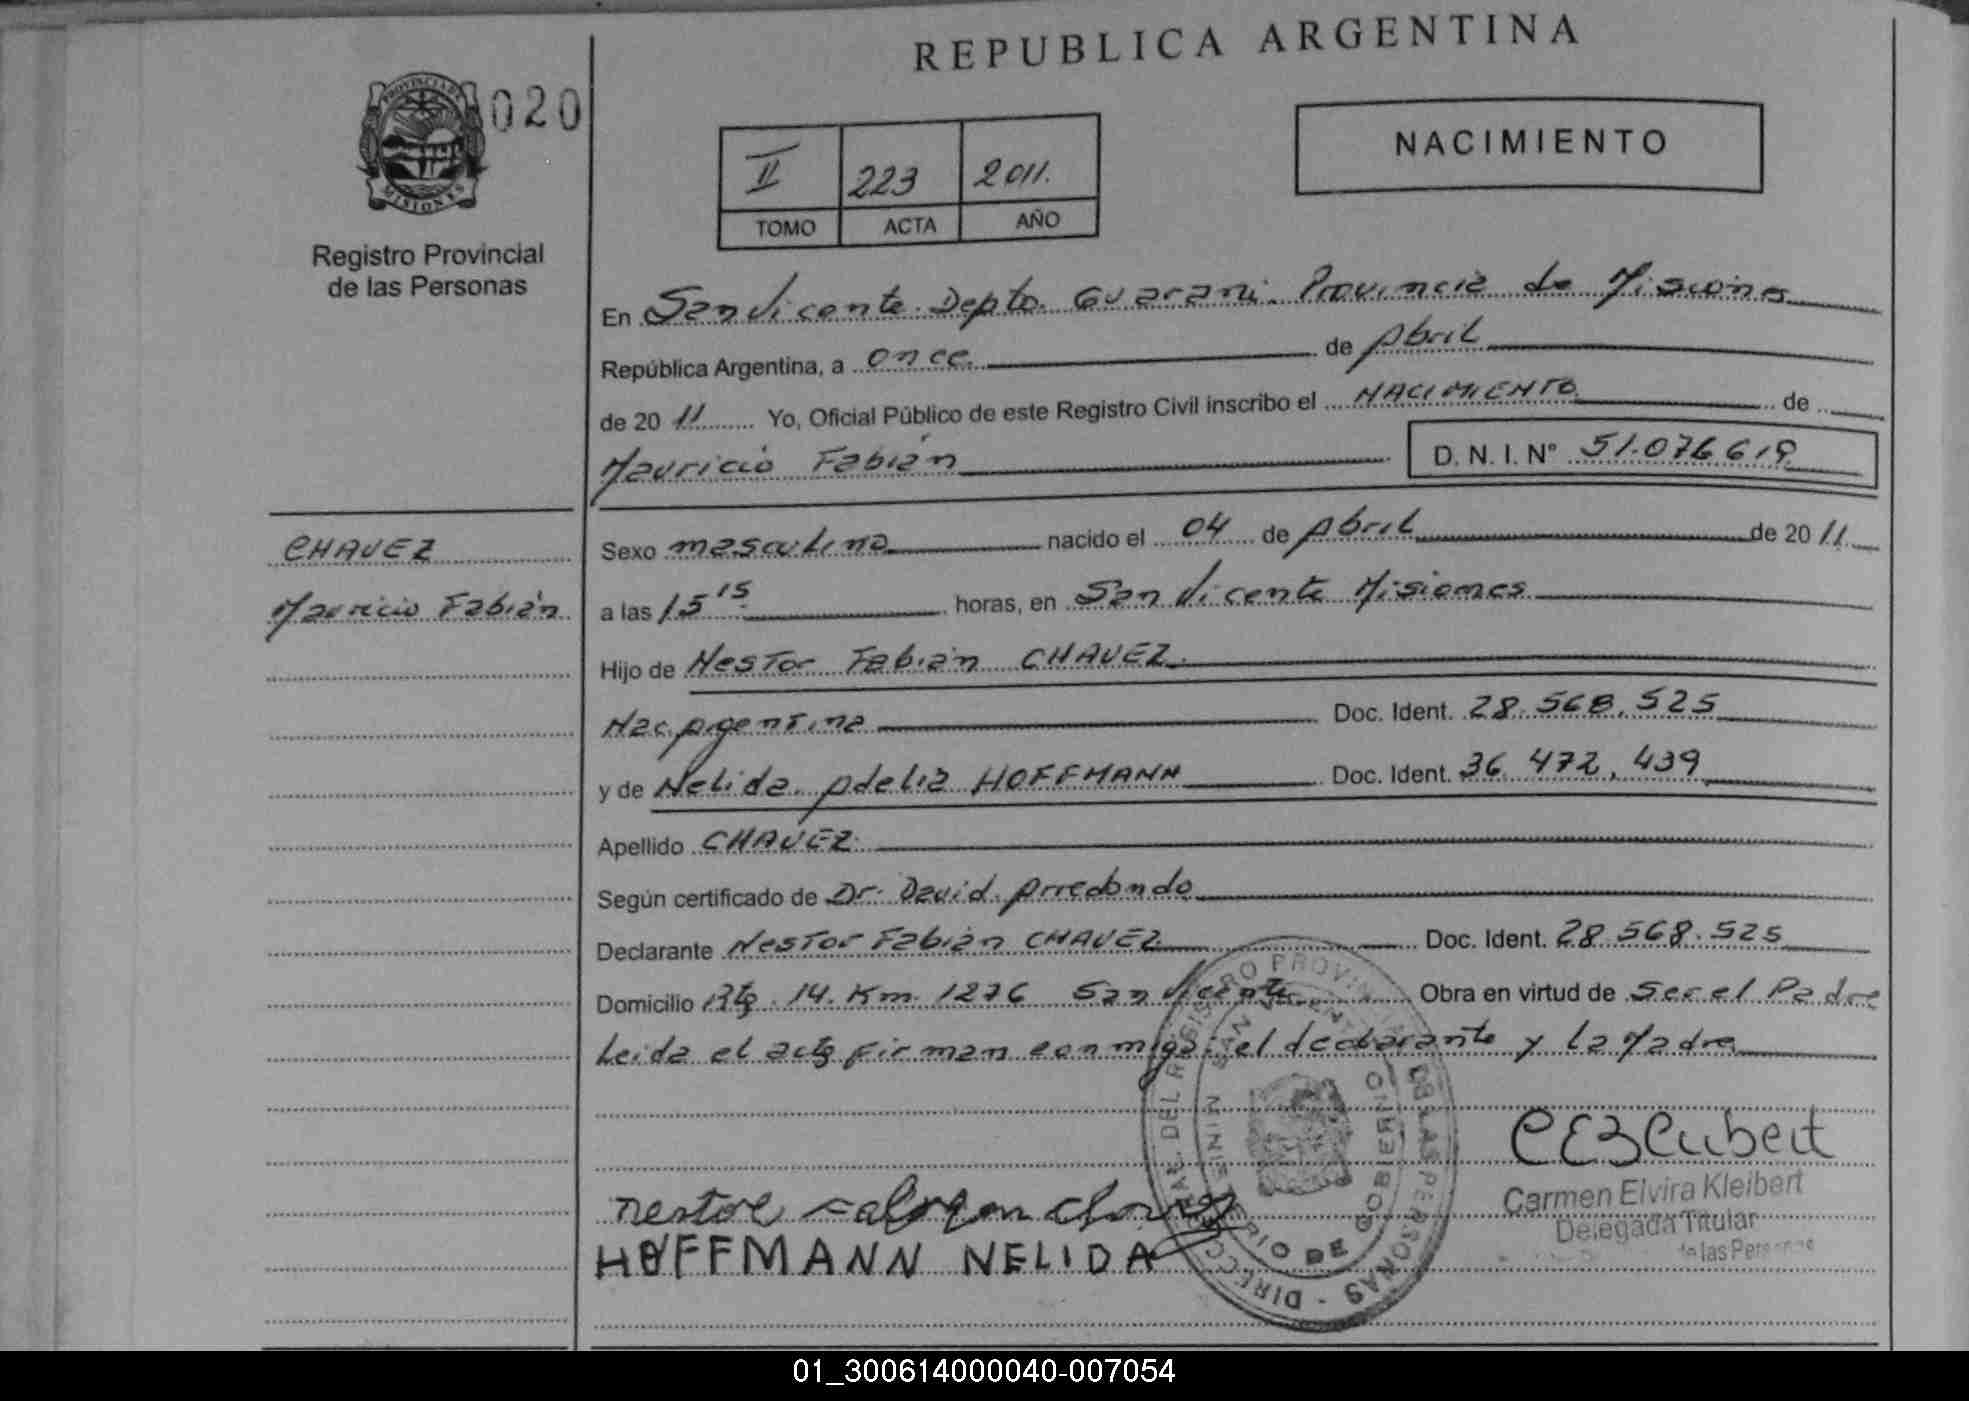 REPUBLICA ARGENTINA
PROVINCIA DE
MISIONES
020
Registro Provincial
de las Personas
II 223 2011.
TOMO ACTA AÑO
NACIMIENTO
En San Vicente. Depto. Guarani. Provincia de Misiones
República Argentina, a once. de Abril
de 20 11 Yo, Oficial Público de este Registro Civil inscribo el NACIMIENTO de
Mauricio Fabián D. N. I. N° 51.076.619
CHAVEZ
Mauricio Fabián
Sexo masculino nacido el 04 de Abril de 20 11
a las 15 15 horas, en San Vicente Misiones
Hijo de Nestor Fabián CHAVEZ
Nac. Argentina Doc. Ident. 28.568.525
y de Nelida Adelia HOFFMANN Doc. Ident. 36.472.439
Apellido CHAVEZ
Según certificado de Dr. David Arredondo
Declarante Nestor Fabián CHAVEZ Doc. Ident. 28.568.525
Domicilio Rta. 14. Km. 1276 San Vicente Obra en virtud de Ser el Padre
Leida el acta firman conmigo: el declarante y la Madre
DIRECCION GRAL. DEL REGISTRO PROVINCIAL DE LAS PERSONAS
SAN VICENTE
MINISTERIO DE GOBIERNO
Carmen Elvira Kleibert
Delegada Titular
de las Personas
HOFFMANN NELIDA
01_300614000040-007054